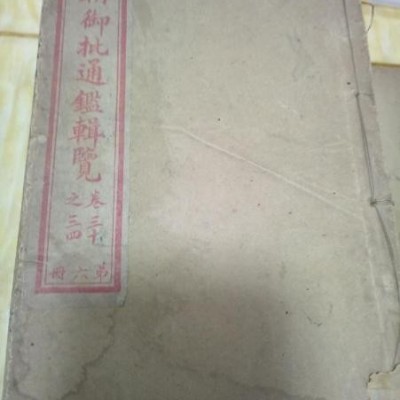 御批通鑑輯覽
卷三十
之三四
第六冊